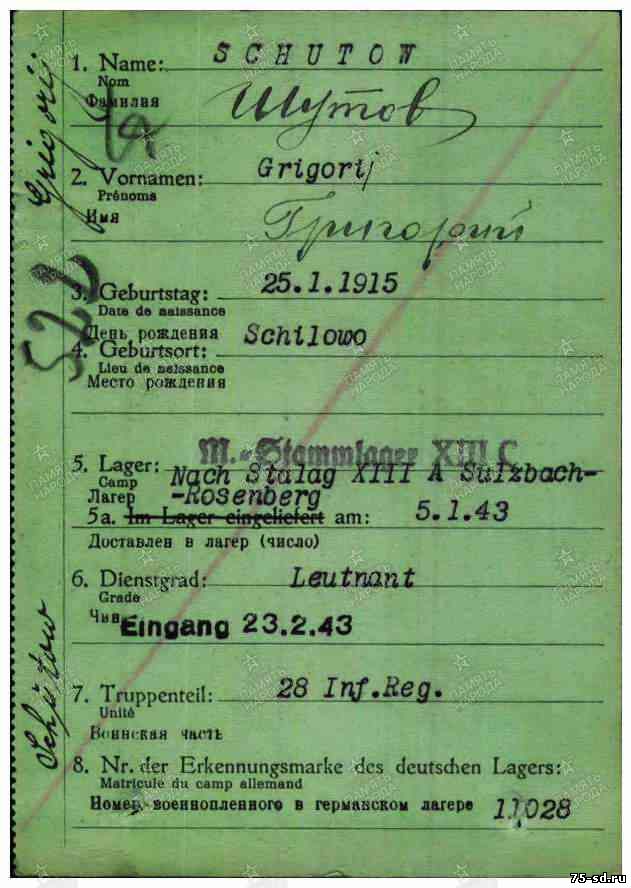 1. Name: SCHUTOW
Nom
Фамилия Шутов
2. Vornamen: Grigorij
Prénoms
Имя Григорий
3. Geburtstag: 25.1.1915
Date de naissance
День рождения
4. Geburtsort: Schilowo
Lieu de naissance
Место рождения
M.-Stammlager XIII C
5. Lager: Nach Stalag XIII A Sulzbach-
Camp
Лагер -Rosenberg
5a. Im Lager eingeliefert am: 5.1.43
Доставлен в лагер (число)
6. Dienstgrad: Leutnant
Grade
Чин Eingang 23.2.43
7. Truppenteil: 28 Inf.Reg.
Unité
Воинская часть
8. Nr. der Erkennungsmarke des deutschen Lagers:
Matricule du camp allemand
Номер военнопленного в германском лагере 11028
Grigorij
522
Schutow
ПАМЯТЬ НАРОДА
75-sd.ru